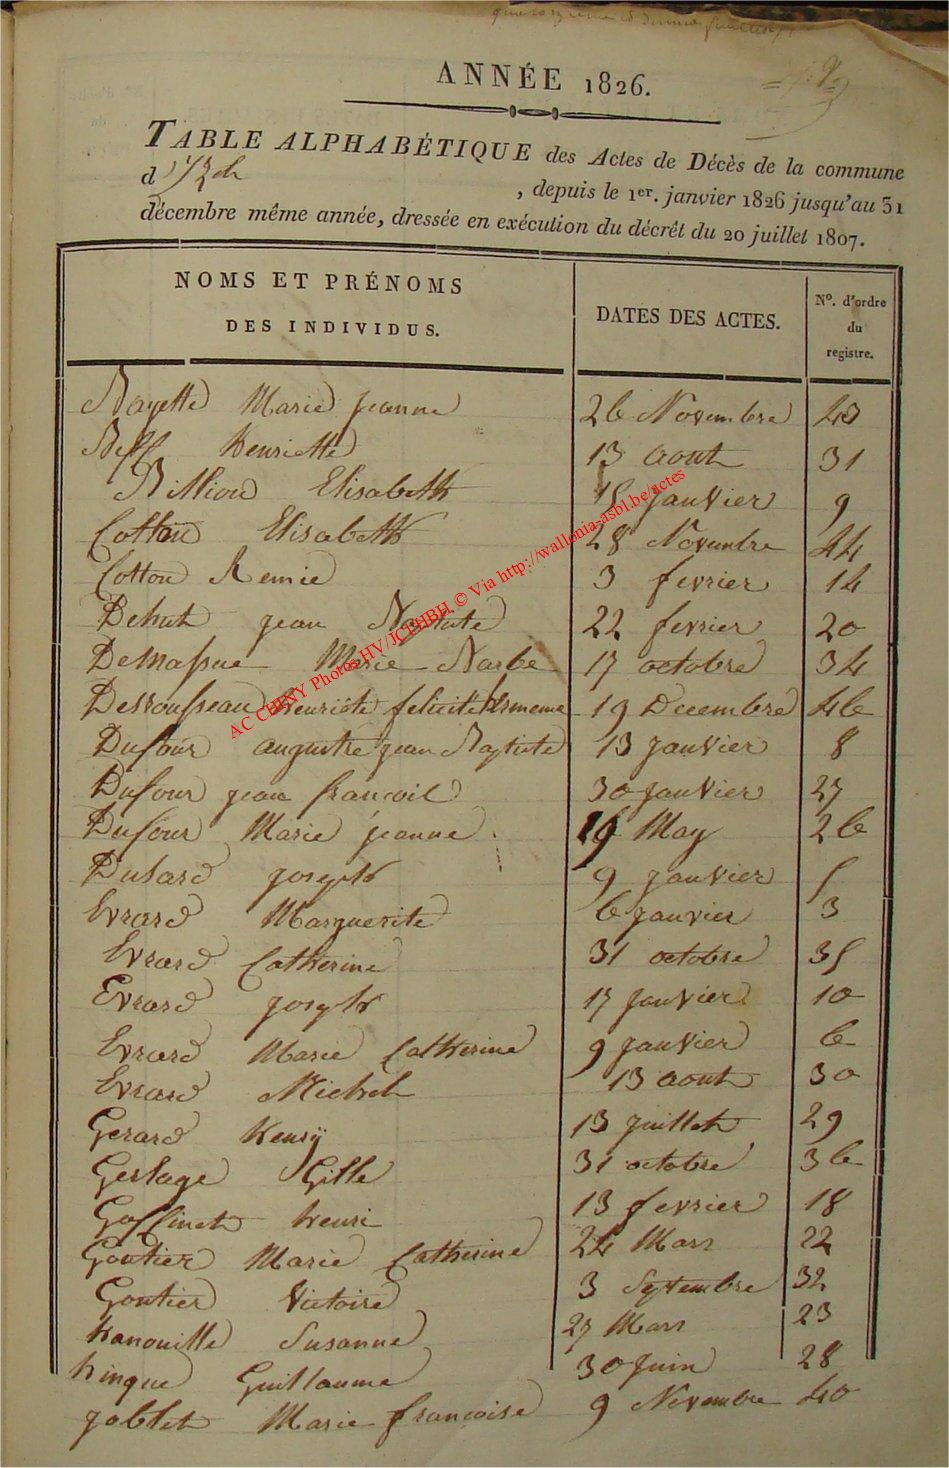 ANNÉE 1826.
TABLE ALPHABÉTIQUE des Actes de Décès de la commune
d'Izel , depuis le 1er. janvier 1826 jusqu'au 31
décembre même année, dressée en exécution du décrêt du 20 juillet 1807.
NOMS ET PRÉNOMS
DES INDIVIDUS.
DATES DES ACTES.
No. d'ordre
du
registre.
Bayette Marie jeanne 26 Novembre 43
Henriette 13 aout 31
Billion Elisabeth 15 janvier 9
Cotton Elisabeth 28 Novembre 44
Cotton Remie 3 fevrier 14
Dehut jean Baptiste 22 fevrier 20
Demassue Marie Barbe 17 octobre 34
Desrousseau henriette felicité 19 Decembre 46
Dufour augustre jean Baptiste 13 janvier 8
Dufour jean francois 30 janvier 27
Dufour Marie jeanne 16 May 26
Dusard joseph 9 janvier 5
Evrard Marguerite 6 janvier 3
Evrard Catherine 31 octobre 35
Evrard joseph 17 janvier 10
Evrard Marie Catherine 9 janvier 6
Evrard Michel 13 aout 30
Gerard henry 13 juillet 29
Gerlage Gille 31 octobre 36
Goffinet henri 13 fevrier 18
Goutier Marie Catherine 24 Mars 22
Goutier Victoire 3 Septembre 32
hanouille Susanne 27 Mars 23
hinque Guillaume 30 juin 28
joblet Marie francoise 9 Novembre 40
AC CHINY Photos HV/JCPHBH © Via http://wallonia-asbl.be/actes